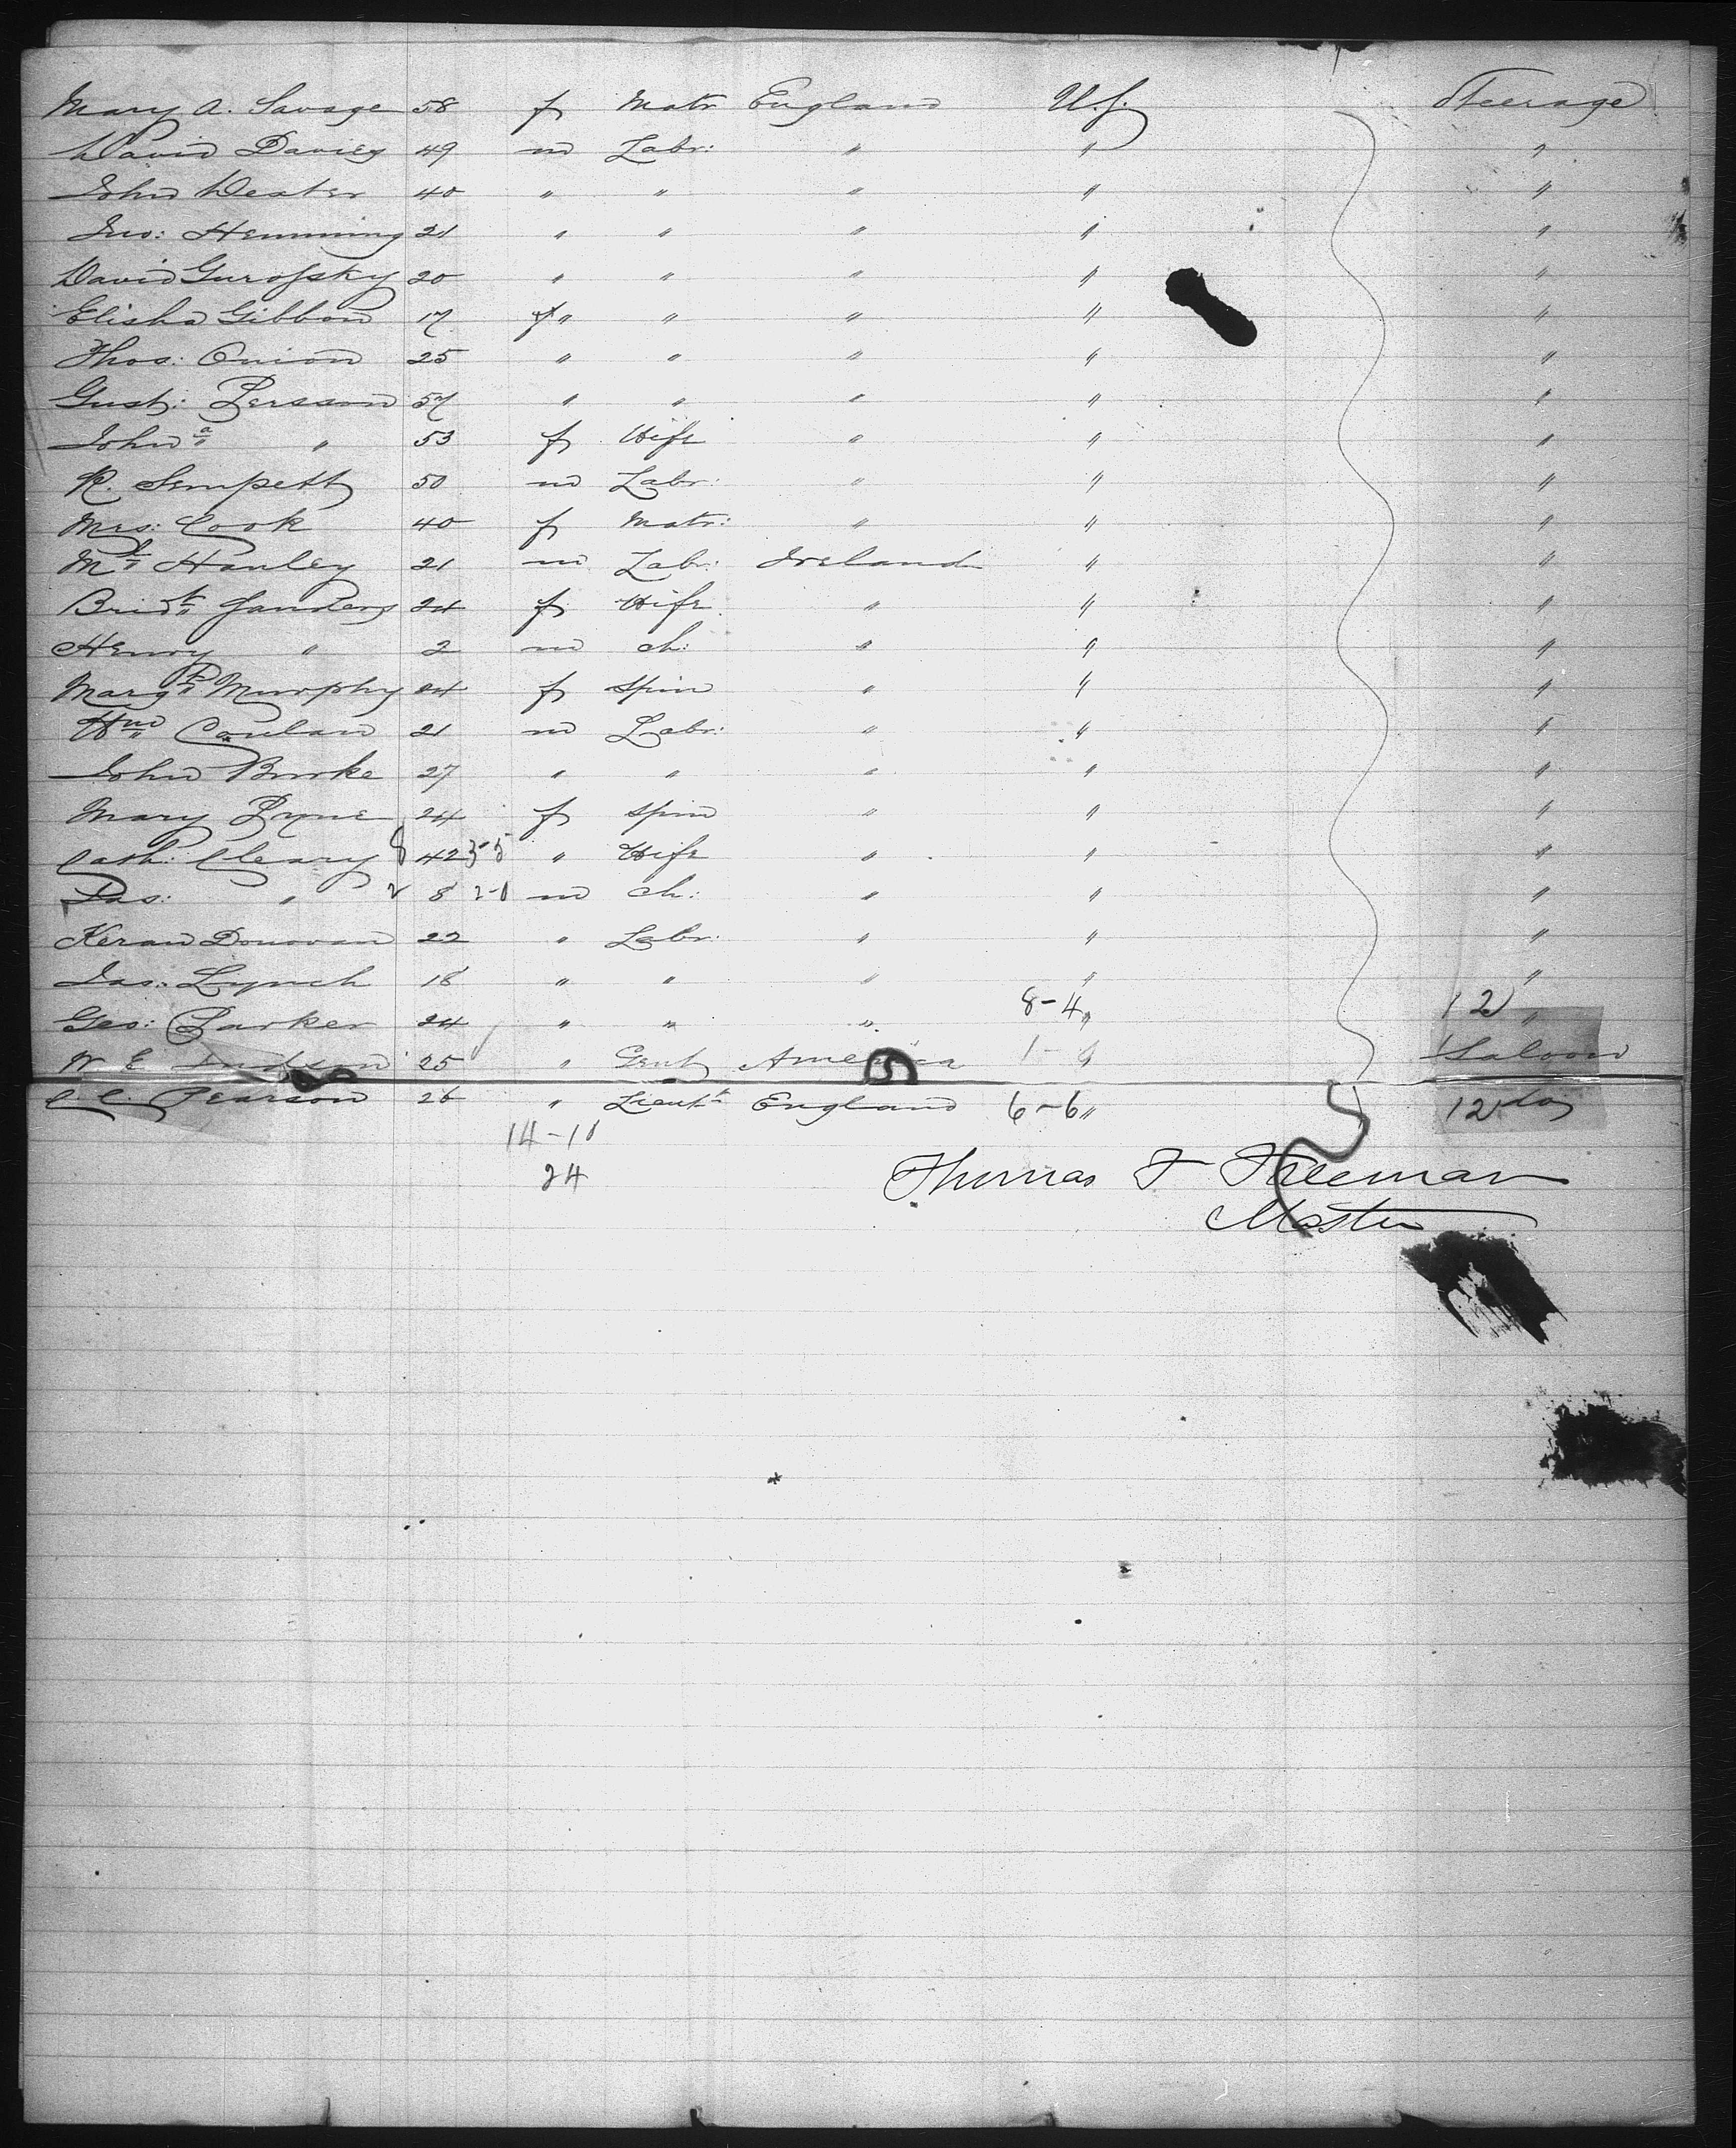 Mary A. Savage 58 f Matr England U.S. Steerage
David Davies 49 m Labr: " " "
John Dexter 40 " " " " "
Jno: Hemming 21 " " " " "
David Gurofsky 20 " " " " "
Elisha Gibbon 17 " " " " "
Thos: Onion 25 " " " " "
Gust: Persson 57 " " " " "
Johna " 53 f Wife " " "
R. Sempett 50 m Labr: " " "
Mrs: Cook 40 f Matr: " " "
Mt Hanley 21 m Labr: Ireland " "
Bridt Sanders 24 f Wife " " "
Henry " 2 m ch: " " "
Margt Murphy 24 f Spin " " "
Wm Conlan 21 m Labr: " " "
John Burke 27 " " " " "
Mary Pyne 24 f Spin " " "
Cath: Cleary 42 3-5 " Wife " " "
Jas: " 8 2-0 m ch: " " "
Keran Donovan 22 " Labr: " " "
Jas: Lynch 18 " " " " "
Geo: Parker 24 " " " 8-4 " 12 "
W E 25 " Gent America " Saloon
C. C. Pearson 26 " Lieutt England 6-6 " 12 do
14-10
24
Thomas F Freeman
Master